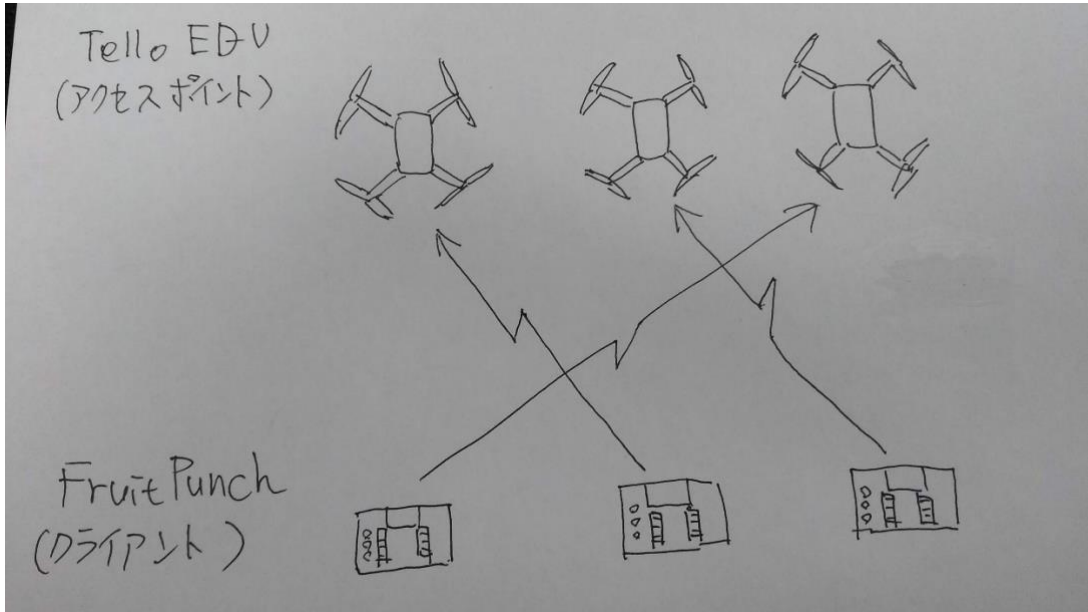 Tello EDU
(アクセスポイント)
FruitPunch
(クライアント)